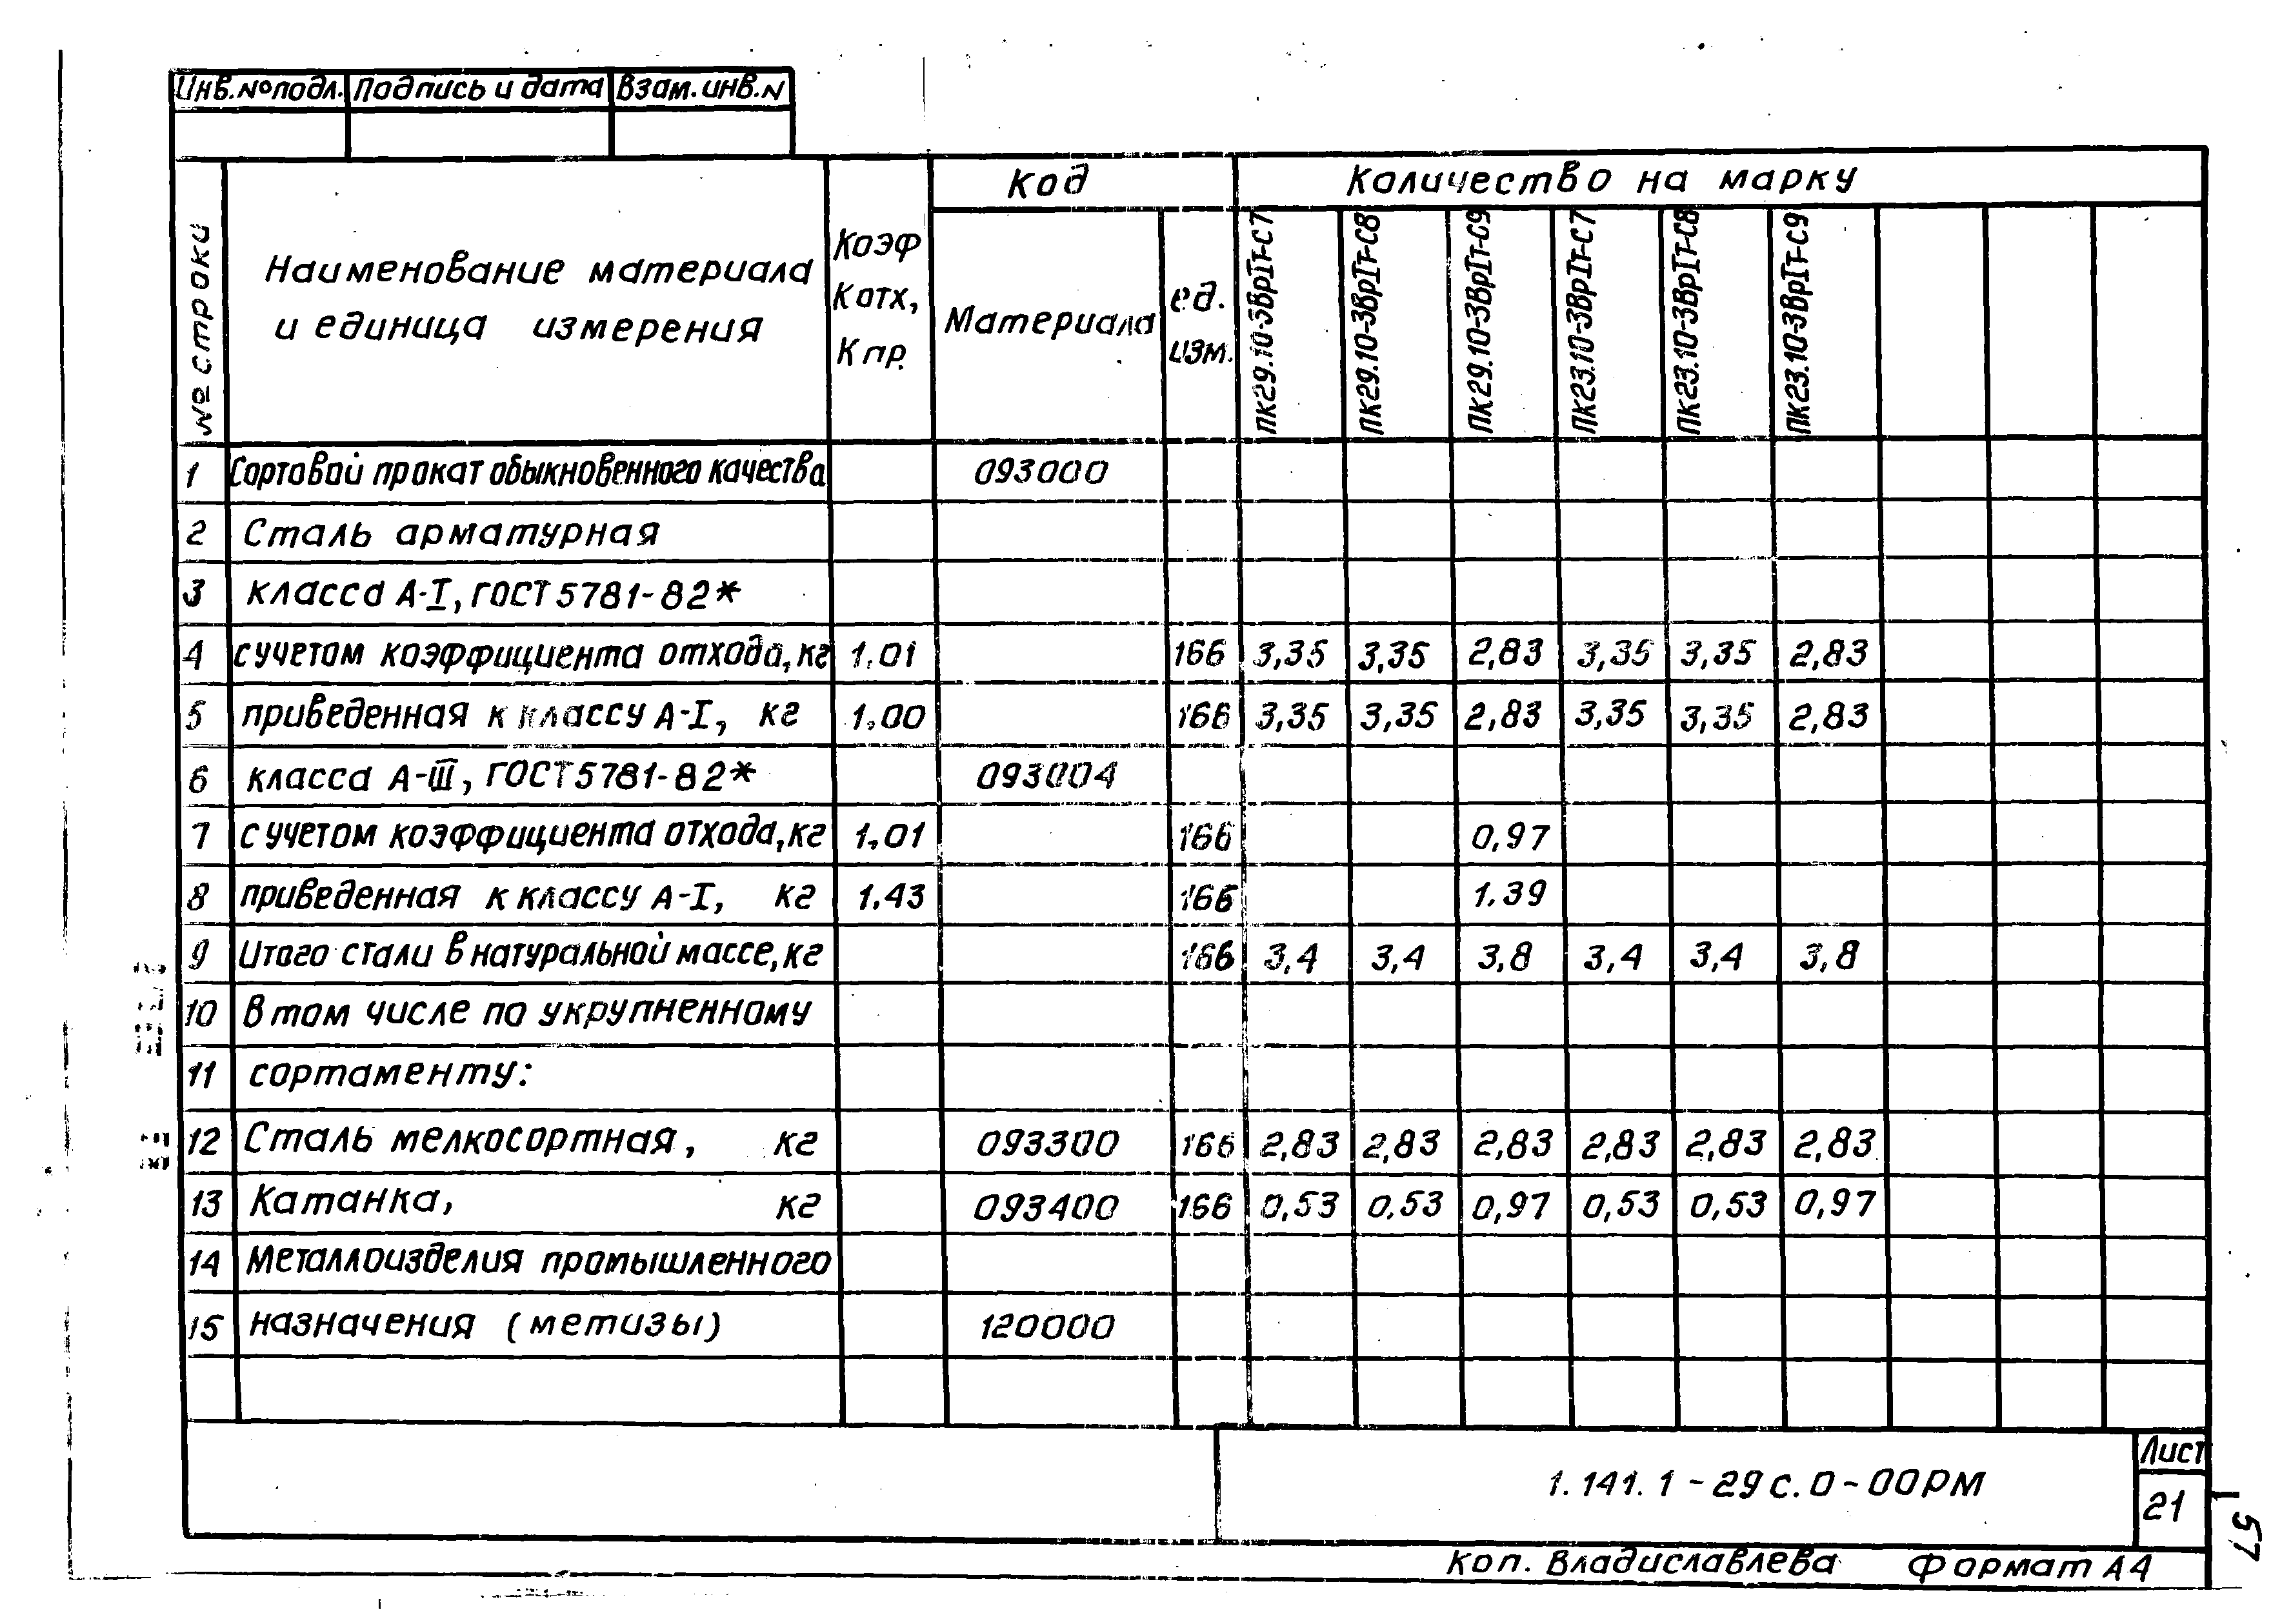 Инв.№подл. Подпись и дата Взам.инв.N
№ строки Наименование материала и единица измерения Коэф Котх, Кпр. Код Количество на марку
Материала ед. изм. ПК29.10-3ВрIт-С7 ПК29.10-3ВрIт-С8 ПК29.10-3ВрIт-С9 ПК23.10-3ВрIт-С7 ПК23.10-3ВрIт-С8 ПК23.10-3ВрIт-С9
1 Сортовой прокат обыкновенного качества 093000
2 Сталь арматурная
3 класса А-I, ГОСТ 5781-82*
4 с учетом коэффициента отхода, кг 1.01 166 3,35 3,35 2,83 3,35 3,35 2,83
5 приведенная к классу А-I, кг 1.00 166 3,35 3,35 2,83 3,35 3,35 2,83
6 класса А-III, ГОСТ 5781-82* 093004
7 с учетом коэффициента отхода, кг 1.01 166 0,97
8 приведенная к классу А-I, кг 1.43 166 1.39
9 Итого стали в натуральной массе, кг 166 3,4 3,4 3,8 3,4 3,4 3,8
10 В том числе по укрупненному
11 сортаменту:
12 Сталь мелкосортная, кг 093300 166 2,83 2,83 2,83 2,83 2,83 2,83
13 Катанка, кг 093400 166 0,53 0,53 0,97 0,53 0,53 0,97
14 Металлоизделия промышленного
15 назначения (метизы) 120000
1.141.1-29с.0-00РМ
Лист
21
57
Коп. Владиславлева Формат А4